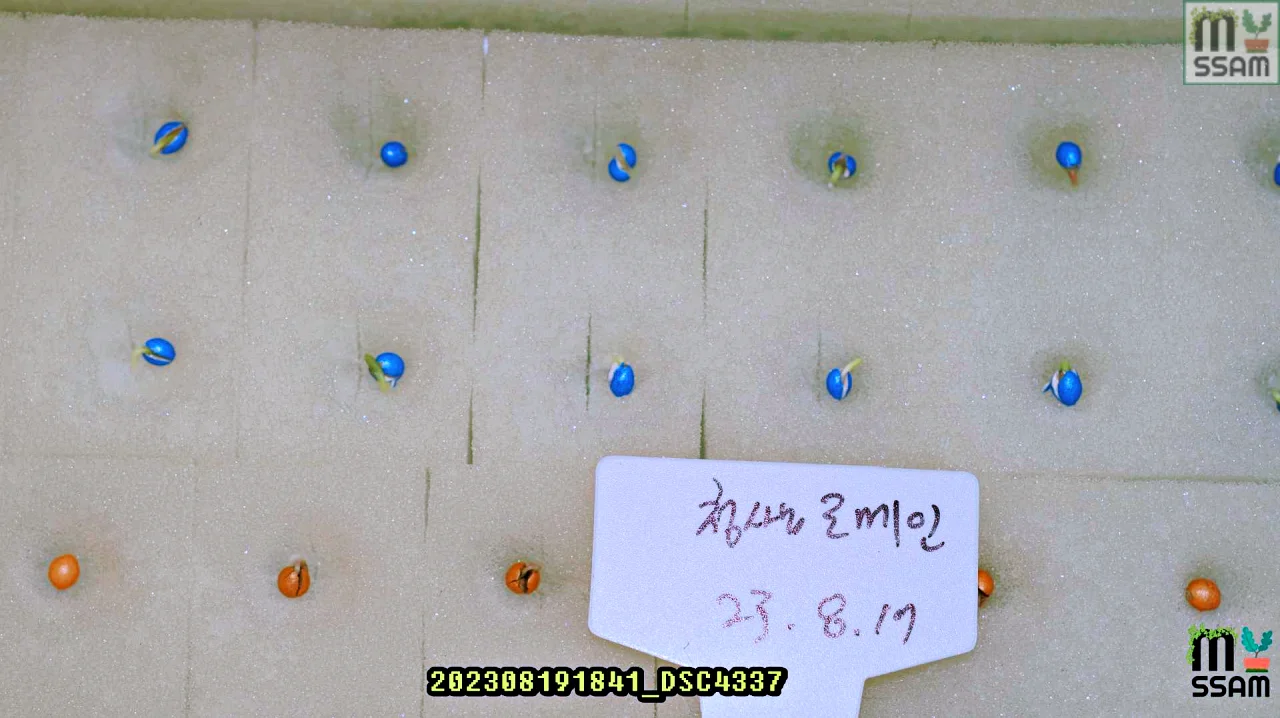 m
SSAM
청상농 로메인
23. 8. 17
202308191841_DSC4337
m
SSAM